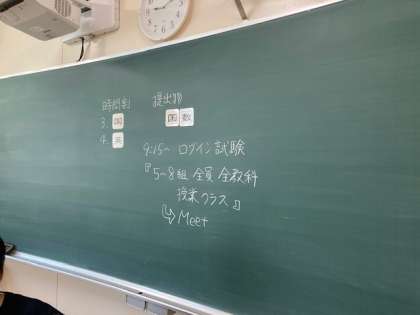 時間割
3. 国
4. 英
提出物
国 数
9:15～ ログイン試験
『5～8組 全員 全教科
授業クラス』
↳ Meet